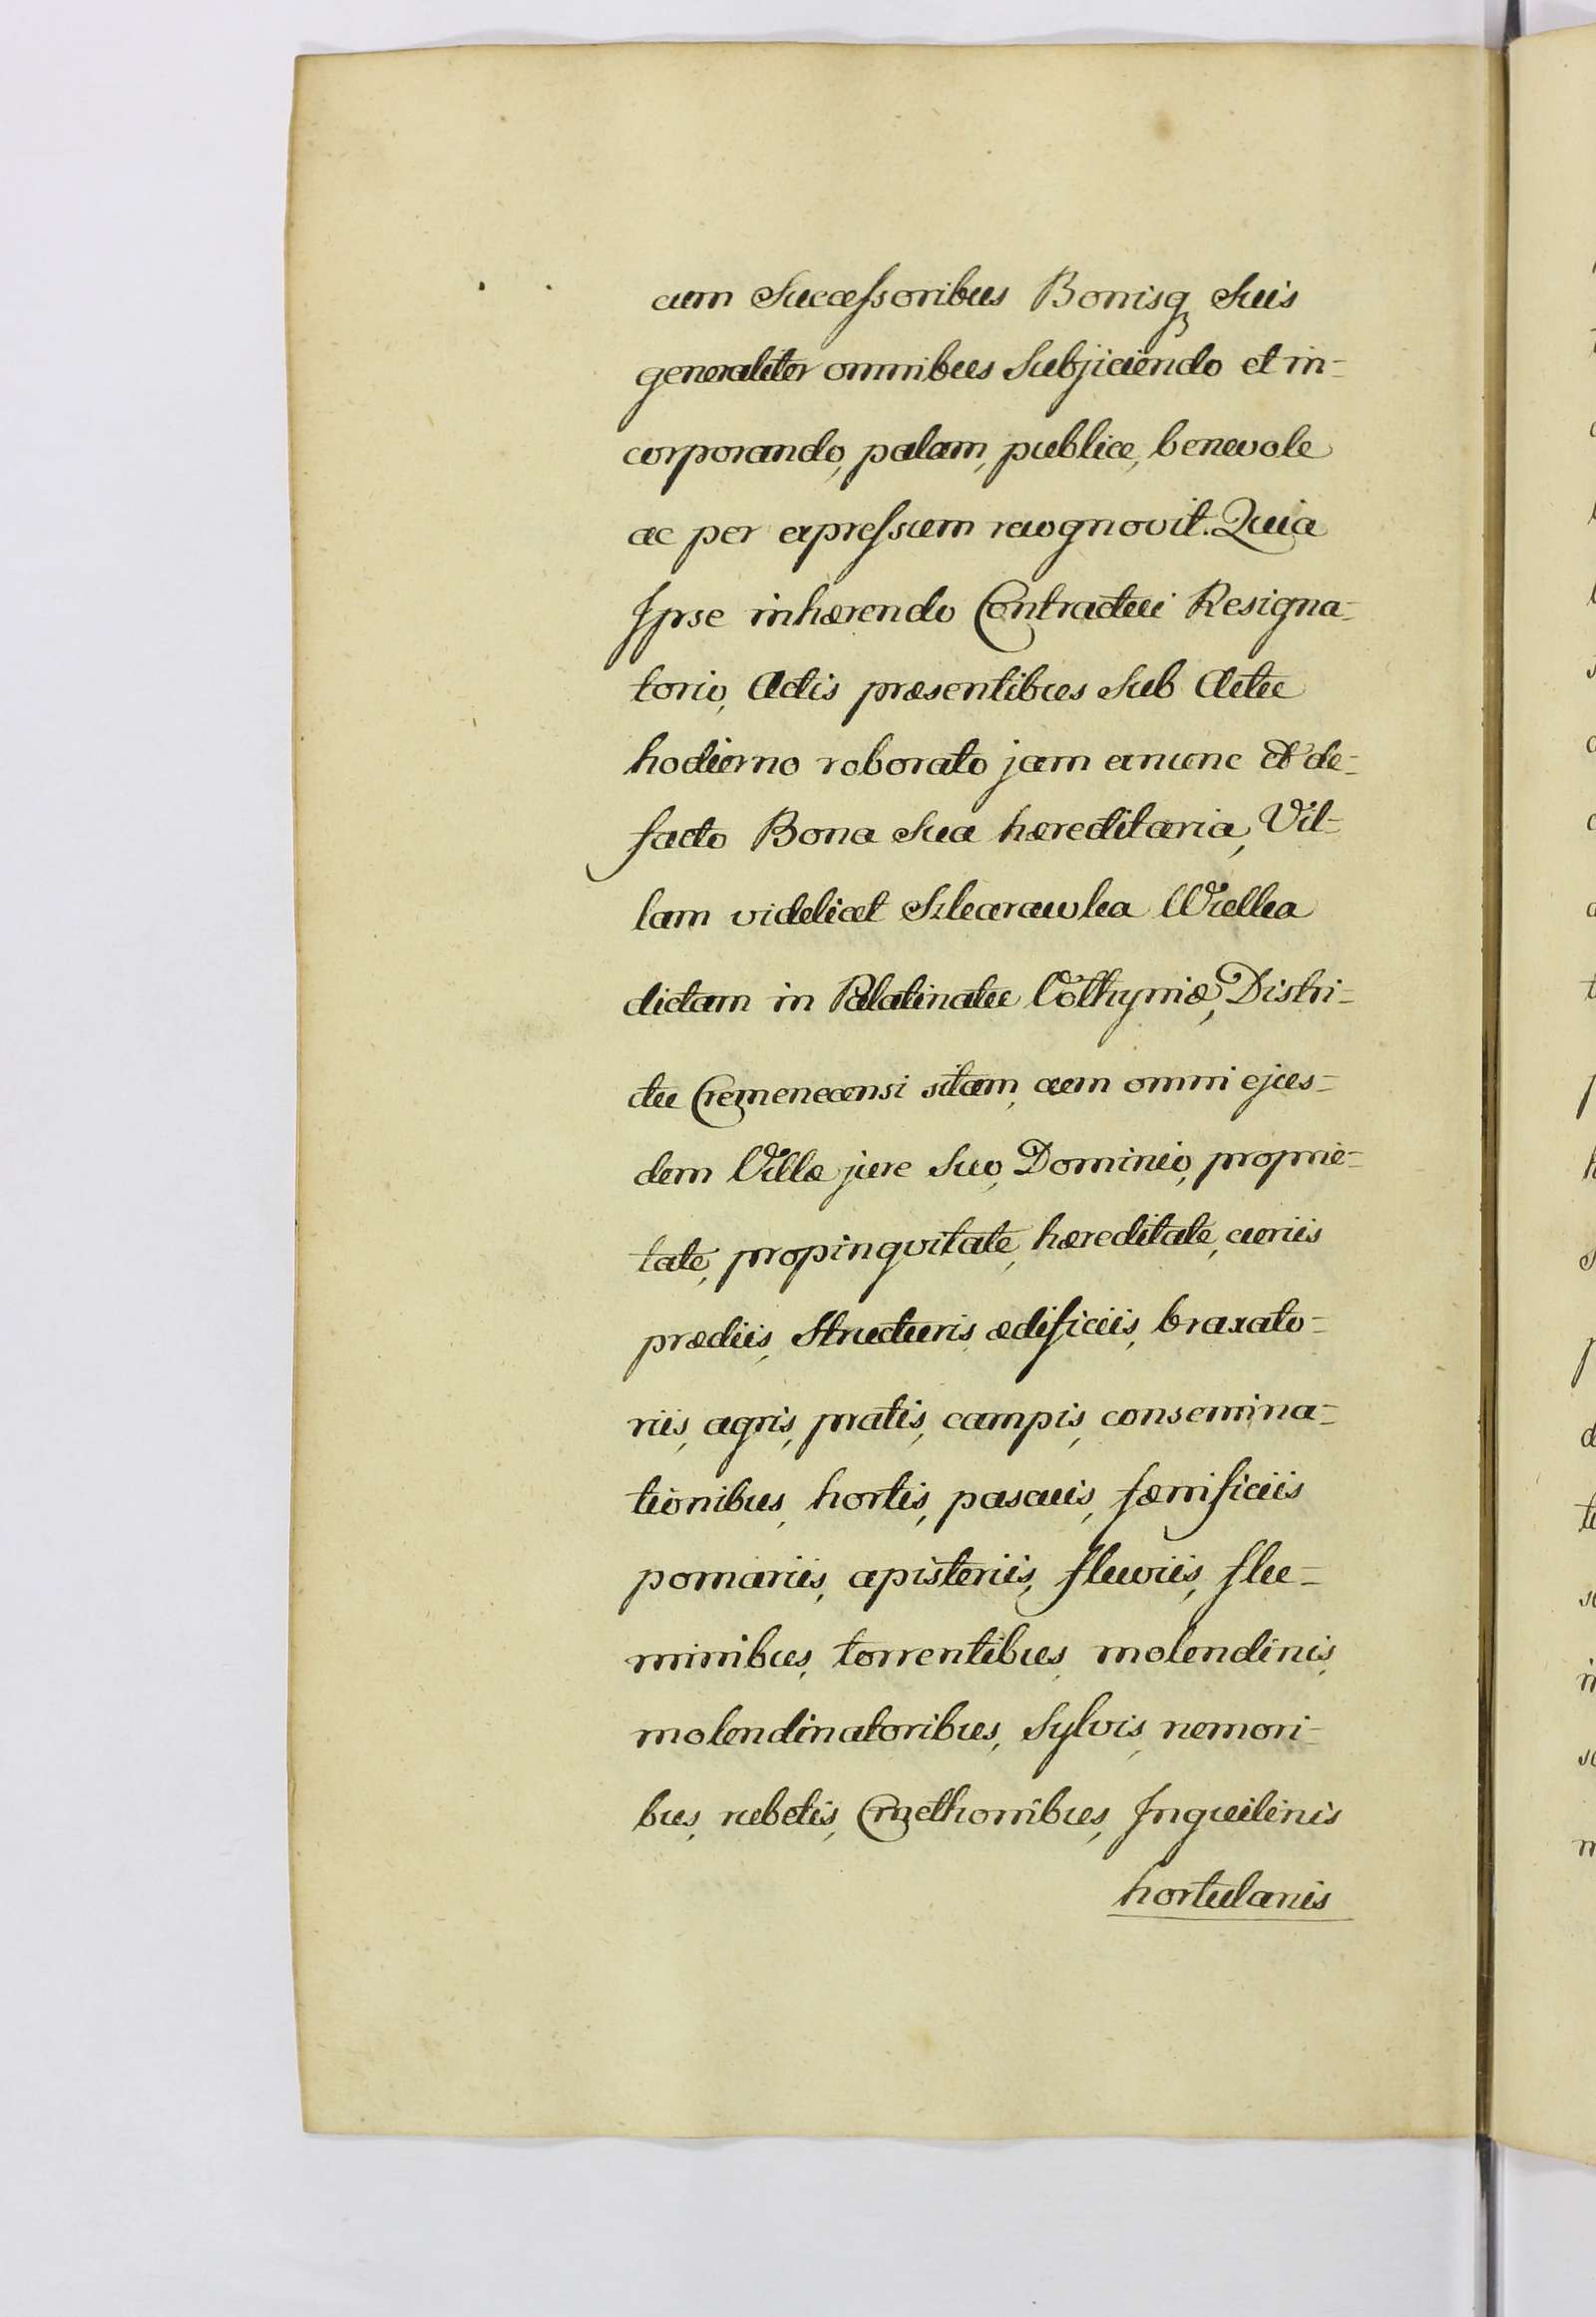 cum Successoribus Bonisq₃ Suis
generaliter omnibus Subjiciendo et in=
corporando, palam, publice, benevole
ac per expressum recognovit. Quia
Ipse inhærendo Contractui Resigna=
torio, Actis præsentibus Sub Actu
hodierno roborato jam exnunc et de=
facto Bona Sua hæreditaria, Vil=
lam videlicet Szkarawka Wielka
dictam in Palatinatu Volhyniæ, Distri=
ctu Cremenecensi sitam, cum omni ejus=
dem Villæ jure Suo, Dominio, proprie=
tate, propinqvitate, hæreditate, curiis
prædiis, Structuris ædificiis, braxato=
riis, agris, pratis, campis, consemina=
tionibus, hortis, pascuis, fænificiis
pomariis, apisteriis, fluviis, flu=
minibus, torrentibus, molendinis,
molendinatoribus, Sylvis, nemori=
bus, rubetis, Cmethonibus, Inquilinis
hortulanis